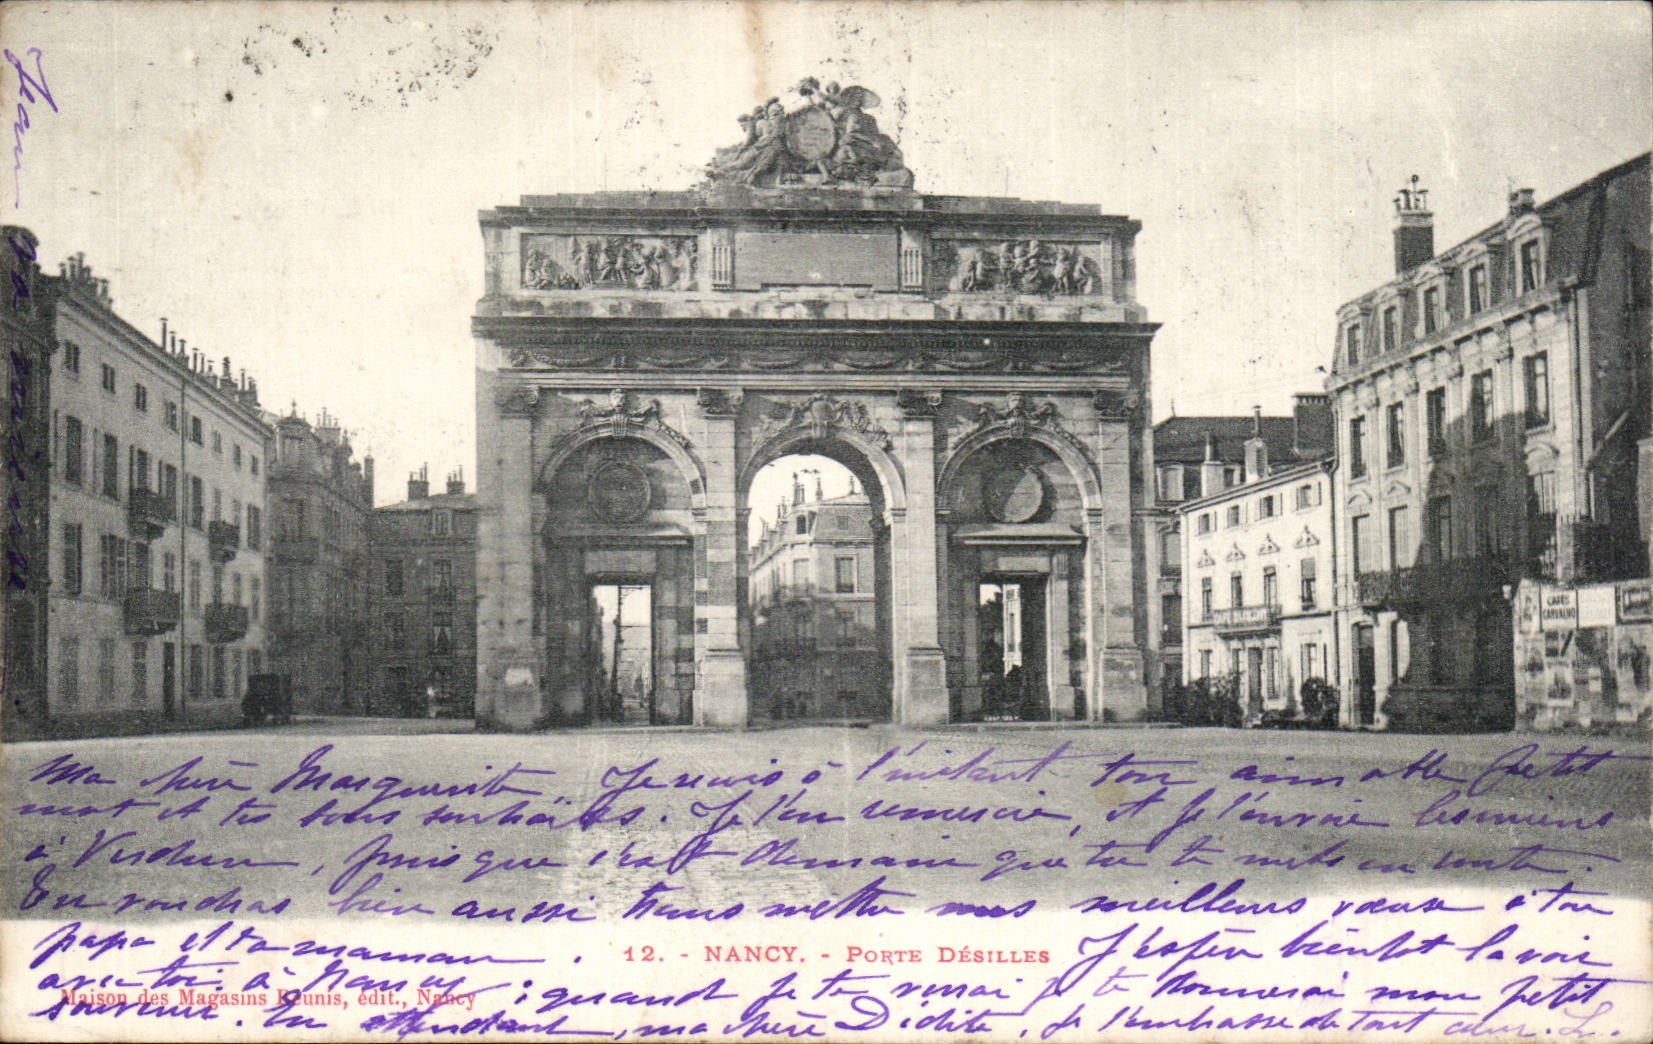 Ma chère Marguerite, Je reçois à l'instant ton aimable petit
mot et tes bons souhaits. Je t'en remercie, et je t'envoie les miens
à Verdun, puisque c'est demain que tu te mets en route.
Tu voudras bien aussi transmettre mes meilleurs vœux à ton
papa et ta maman. J'espère bientôt la voir
avec toi à Nancy ; quand je te verrai je te donnerai mon petit
souvenir. En attendant, ma chère Didite, je t'embrasse de tout cœur. L.
Jean
12. - NANCY. - PORTE DÉSILLES
Maison des Magasins Réunis, édit., Nancy
CAFÉS
CARVALHO